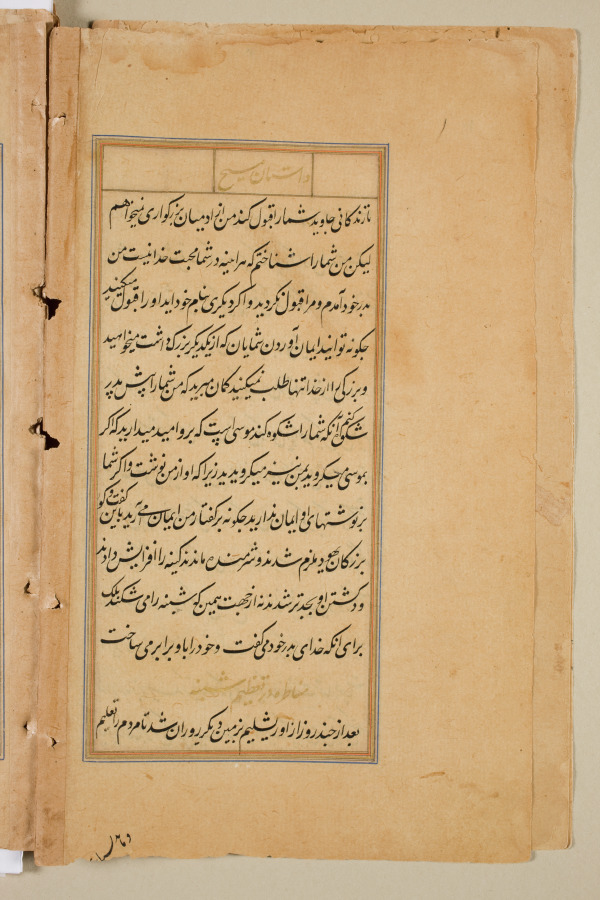 داستان مسیح
تا زندکانی جاوید شما را قبول کند من از ادمیان بزرکواری نمیخواهم
لیکن من شما را شناختم که هر اینه در شما محبت خدا نیست من
بدر خود آمدم و مرا قبول نکردید و اکر دیکری بنام خود اید او را قبول میکنید
جکونه توانید ایمان آوردن شمایان که از یکدیکر بزرکداشت میخواهید
و بزرکی را از خدا تنها طلب نمیکنید کمان مبرید که من شما را پیش پدر
شکوه کنم آنکه شما را شکوه کند موسی است که برو امید میدارید که اکر
بموسی میکرویدید بمن نیز میکرویدید زیرا که او از من نوشت و اکر شما
بر نوشتهای او ایمان ندارید جکونه بر کفتار من ایمان می آرید باین کفت و کو
بزرکان یهود ملزم شدند و شرمنده ماندند کینه را افزایش دادند
و در کشتن او بجدتر شدند نه از جهت همین که شنبه را می شکند بلک
برای آنکه خدای پدر خود می کفت و خود را با او برابر می ساخت
مناظره در تعظیم شنبه
بعد از چند روز از اورشلیم بزمین دیکر روان شد تا مردم را تعلیم